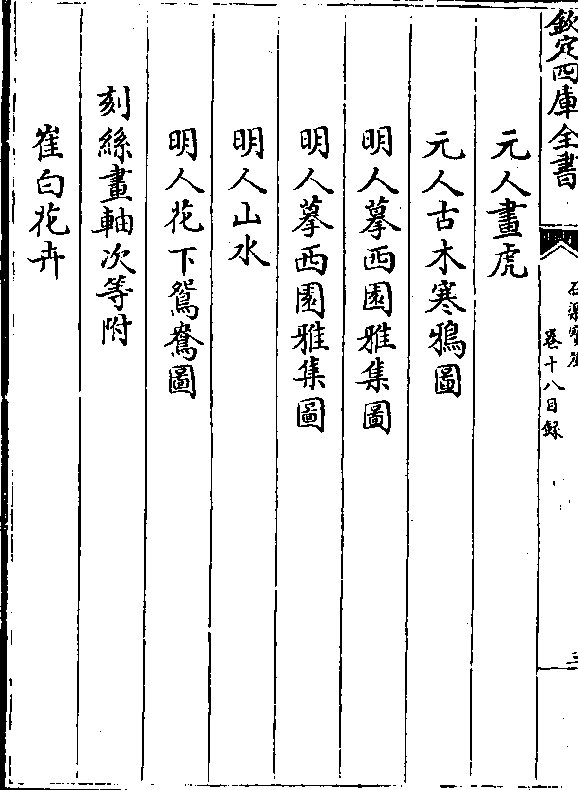 欽定四庫全書
石渠寶笈
卷十八目録
三
元人畫虎
元人古木寒鴉圖
明人摹西園雅集圖
明人摹西園雅集圖
明人山水
明人花下鴛鴦圖
刻絲畫軸次等附
崔白花卉